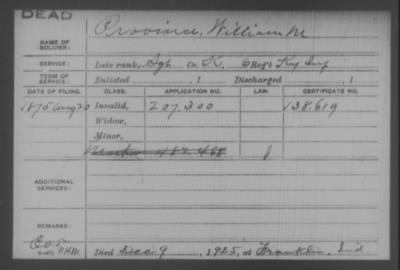 DEAD
NAME OF SOLDIER: Province, William M
SERVICE: Late rank, Sgt Co. K, 6 Reg't Ky Inf
TERM OF SERVICE: Enlisted , 1 Discharged , 1
DATE OF FILING. CLASS. APPLICATION NO. LAW. CERTIFICATE NO.
1875 Aug 20 Invalid, 207.300 138.619
Widow,
Minor,
ADDITIONAL SERVICES:
REMARKS:
Died Dec 9, 1925, at Franklin, Ind